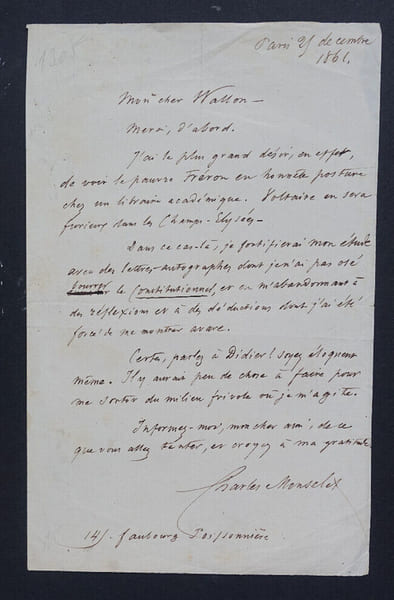 Paris 25 decembre
1861.
Mon cher Wallon —
Merci, d'abord.
J'ai le plus grand désir, en effet,
de voir le pauvre Fréron en honnête posture
chez un libraire académique. Voltaire en sera
furieux dans les Champs-Elysées —
Dans ce cas-là, je fortifierai mon étude
avec des lettres-autographes dont je n'ai pas osé
bourrer le Constitutionnel, et en m'abandonnant à
des réflexions et à des déductions dont j'ai été
forcé de me montrer avare.
Certes, parlez à Didier! soyez éloquent
même. Il y aurait peu de chose à faire pour
me sortir du milieu frivole où je m'agite.
Informez-moi, mon cher ami, de ce
que vous allez tenter, et croyez à ma gratitude
Charles Monselet
145. faubourg Poissonnière